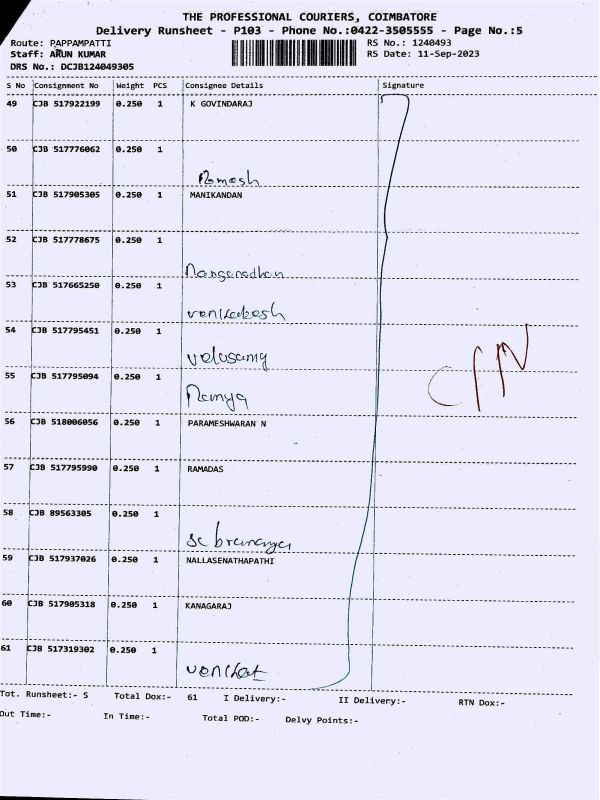 THE PROFESSIONAL COURIERS, COIMBATORE
Delivery Runsheet - P103 - Phone No.:0422-3505555 - Page No.:5
Route: PAPPAMPATTI RS No.: 1240493
Staff: ARUN KUMAR RS Date: 11-Sep-2023
DRS No.: DCJB124049305
S No Consignment No Weight PCS Consignee Details Signature
49 CJB 517922199 0.250 1 K GOVINDARAJ
50 CJB 517776062 0.250 1
Ramesh
51 CJB 517905305 0.250 1 MANIKANDAN
52 CJB 517778675 0.250 1
53 CJB 517665250 0.250 1
venkatesh
54 CJB 517795451 0.250 1
velusamy
55 CJB 517795094 0.250 1
Ramya
56 CJB 518006056 0.250 1 PARAMESHWARAN N
57 CJB 517795990 0.250 1 RAMADAS
58 CJB 89563305 0.250 1
59 CJB 517937026 0.250 1 NALLASENATHAPATHI
60 CJB 517905318 0.250 1 KANAGARAJ
61 CJB 517319302 0.250 1
venkat
Tot. Runsheet:- 5 Total Dox:- 61 I Delivery:- II Delivery:- RTN Dox:-
Out Time:- In Time:- Total POD:- Delvy Points:-